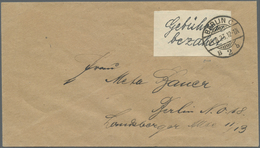 Gebühr
bezahlt
BERLIN C
Frau Meta Bauer
Berlin N.O. 18
Landsberger